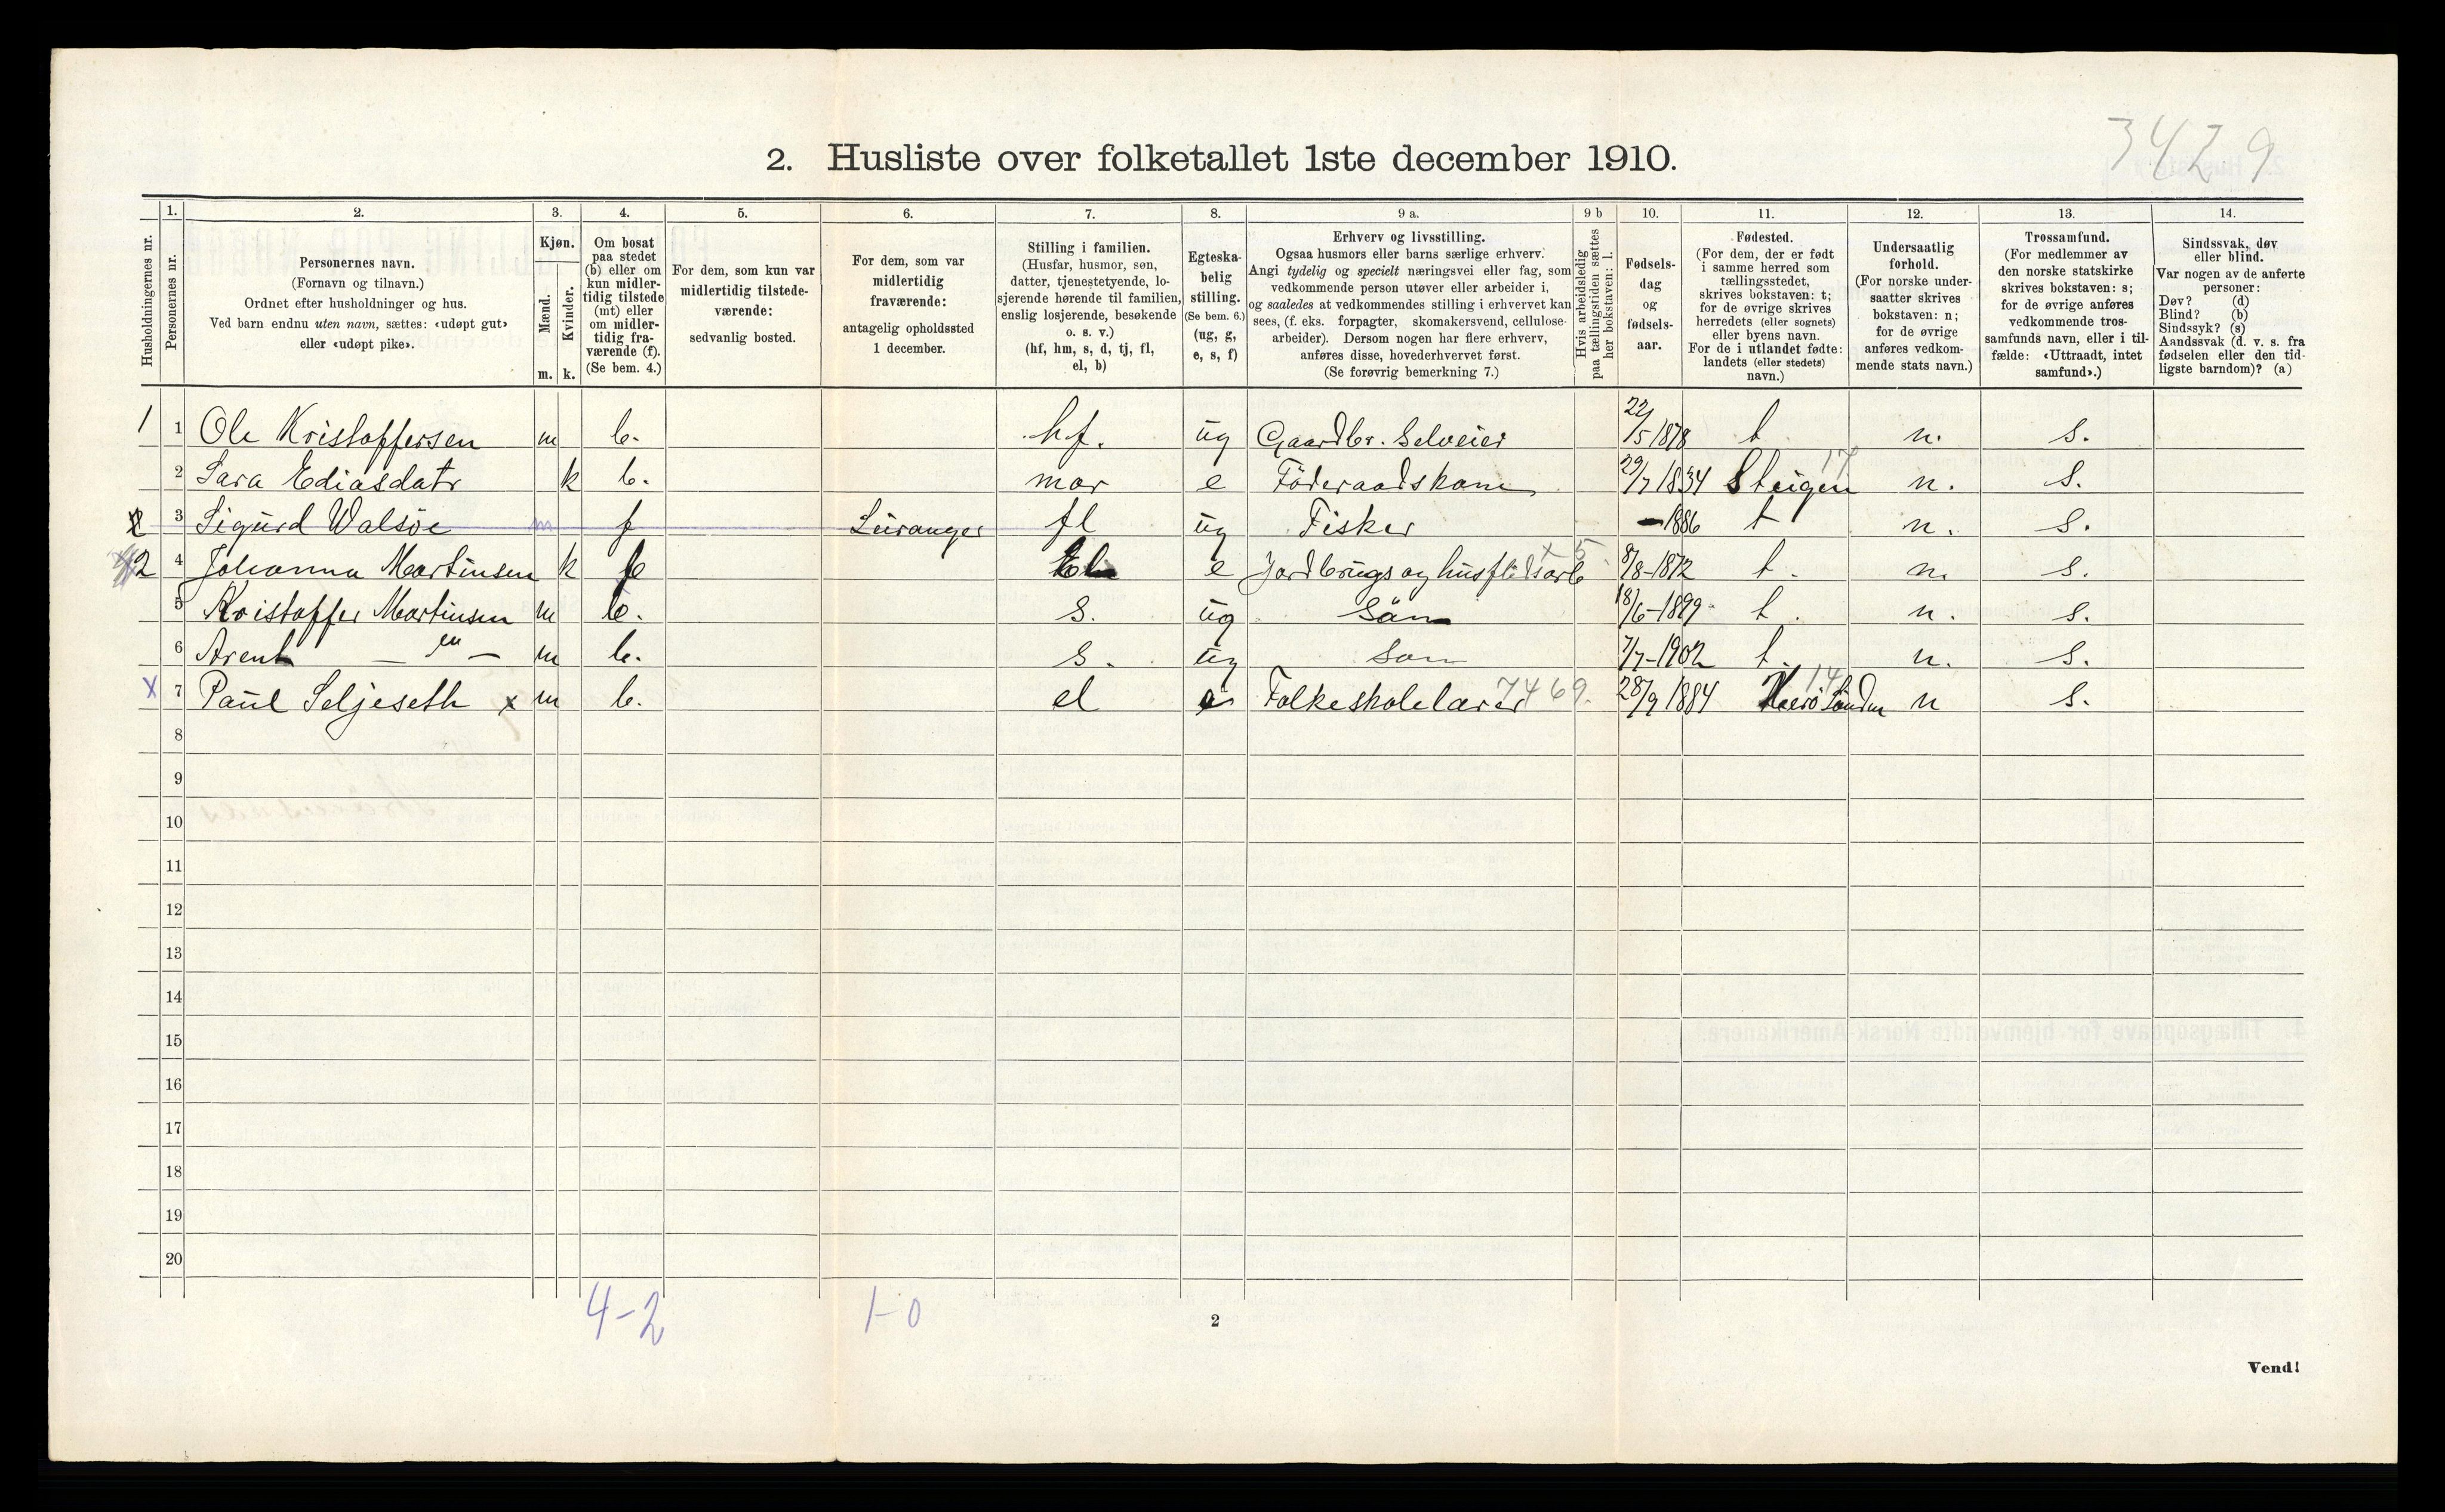 3429
2. Husliste over folketallet 1ste december 1910.
Husholdningernes nr.
1.
Personernes nr.
2.
Personernes navn.
(Fornavn og tilnavn.)
Ordnet efter husholdninger og hus.
Ved barn endnu uten navn, sættes: «udøpt gut»
eller «udøpt pike».
3.
Kjøn.
Mænd.
Kvinder.
m. k.
4.
Om bosat
paa stedet
(b) eller om
kun midler-
tidig tilstede
(mt) eller
om midler-
tidig fra-
værende (f).
(Se bem. 4.)
5.
For dem, som kun var
midlertidig tilstede-
værende:
sedvanlig bosted.
6.
For dem, som var
midlertidig
fraværende:
antagelig opholdssted
1 december.
7.
Stilling i familien.
(Husfar, husmor, søn,
datter, tjenestetyende, lo-
sjerende hørende til familien,
enslig losjerende, besøkende
o. s. v.)
(hf, hm, s, d, tj, fl,
el, b)
8.
Egteska-
belig
stilling.
(Se bem. 6.)
(ug, g,
e, s, f)
9 a.
Erhverv og livsstilling.
Ogsaa husmors eller barns særlige erhverv.
Angi tydelig og specielt næringsvei eller fag, som
vedkommende person utøver eller arbeider i,
og saaledes at vedkommendes stilling i erhvervet kan
sees, (f. eks. forpagter, skomakersvend, cellulose-
arbeider). Dersom nogen har flere erhverv,
anføres disse, hovederhvervet først.
(Se forøvrig bemerkning 7.)
9 b
Hvis arbeidsledig
paa tællingstiden sættes
her bokstaven: l.
10.
Fødsels-
dag
og
fødsels-
aar.
11.
Fødested.
(For dem, der er født
i samme herred som
tællingsstedet,
skrives bokstaven: t;
for de øvrige skrives
herredets (eller sognets)
eller byens navn.
For de i utlandet fødte:
landets (eller stedets)
navn.)
12.
Undersaatlig
forhold.
(For norske under-
saatter skrives
bokstaven: n;
for de øvrige
anføres vedkom-
mende stats navn.)
13.
Trossamfund.
(For medlemmer av
den norske statskirke
skrives bokstaven: s;
for de øvrige anføres
vedkommende tros-
samfunds navn, eller i til-
fælde: «Uttraadt, intet
samfund».)
14.
Sindssvak, døv
eller blind.
Var nogen av de anførte
personer:
Døv? (d)
Blind? (b)
Sindssyk? (s)
Aandssvak (d. v. s. fra
fødselen eller den tid-
ligste barndom)? (a)
1 1 Ole Kristoffersen m b. hf. ug Gaardbr. Selveier 22/5 1878 t n. s.
2 Sara Ediasdatr k b. mor e Föderaadskone 29/7 1834 Steigen 17 n. s.
2 3 Sigurd Walsöe m f Leiranger fl ug Fisker - 1886 t n. s.
2 4 Johanna Martinsen k b El e Jordbrugs og husflidsarb x 5 8/8-1872 t. n. s.
5 Kristoffer Martinsen m b. s. ug Sön 18/6-1899 t. n. s.
6 Arent — " — m b. s. ug Son 7/7-1902 t. n. s.
x 7 Paul Seljeseth x m b. el Folkeskolelærer 7469. 28/9 1884 Herö Söndm 14 n s.
8
9
10
11
12
13
14
15
16
17
18
19
20
4-2 1-0
2
Vend!